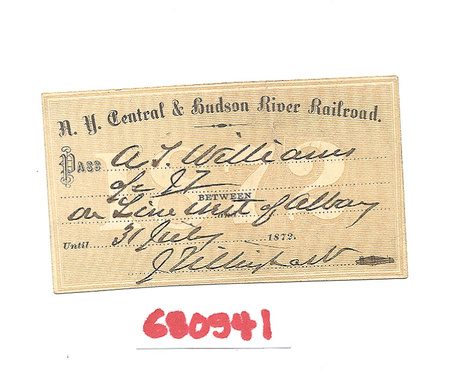 N. Y. Central & Hudson River Railroad.
PASS A T. Williams
BETWEEN
on Line West of Albany
Until 31 July 1872.
680941